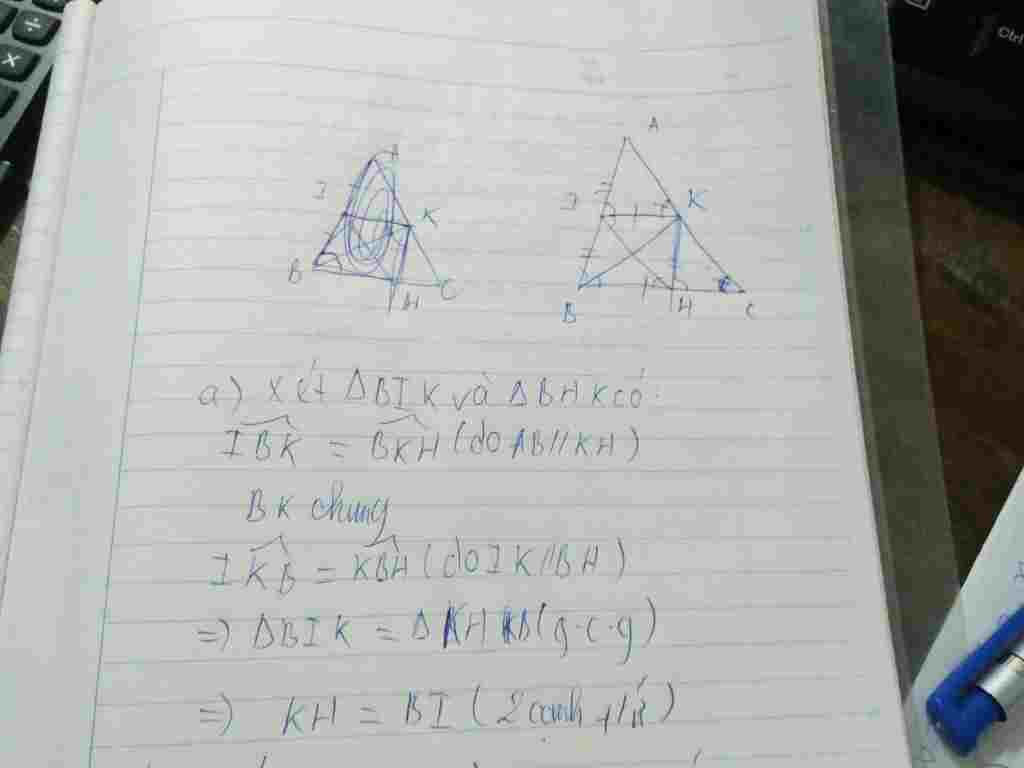 A
I
K
B
H
C
A
I
K
B
H
C
a) Xét ΔBIK và ΔBHK có:
IBK = BKH (do AB//KH)
BK chung
IKB = KBH (do IK//BH)
=) ΔBIK = ΔKHB (g.c.g)
=) KH = BI (2 cạnh t/ứ)
Ctrl